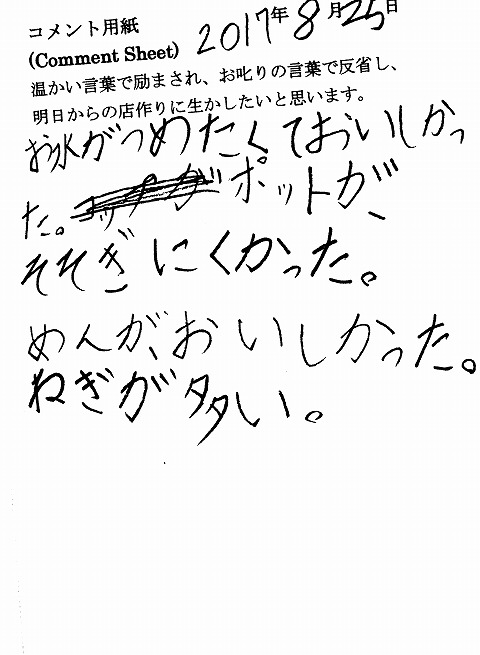 コメント用紙 2017年8月25日
(Comment Sheet)
温かい言葉で励まされ、お叱りの言葉で反省し、
明日からの店作りに生かしたいと思います。
お水がつめたくておいしかっ
た。ポットが、
そそぎにくかった。
めんが、おいしかった。
ねぎが多い。